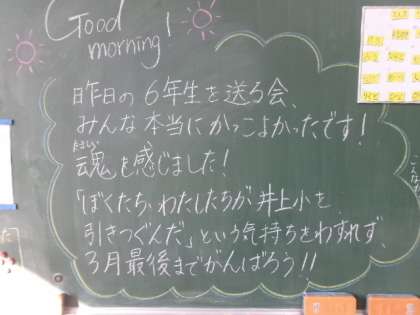 Good
morning!
昨日の6年生を送る会、
みんな本当にかっこよかったです!
たましい
魂を感じました!
「ぼくたち、わたしたちが井上小を
引きつぐんだ」という気持ちをわすれず、
3月最後までがんばろう!!